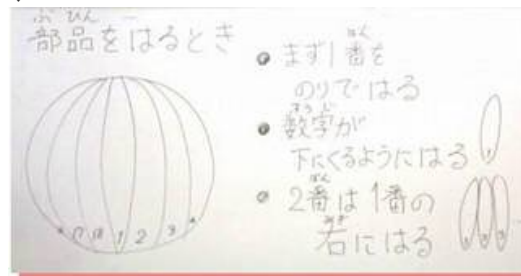 部品をはるとき
まず1番を
のりではる
数字が
下にくるようにはる
2番は1番の
右にはる
1 2 3
1